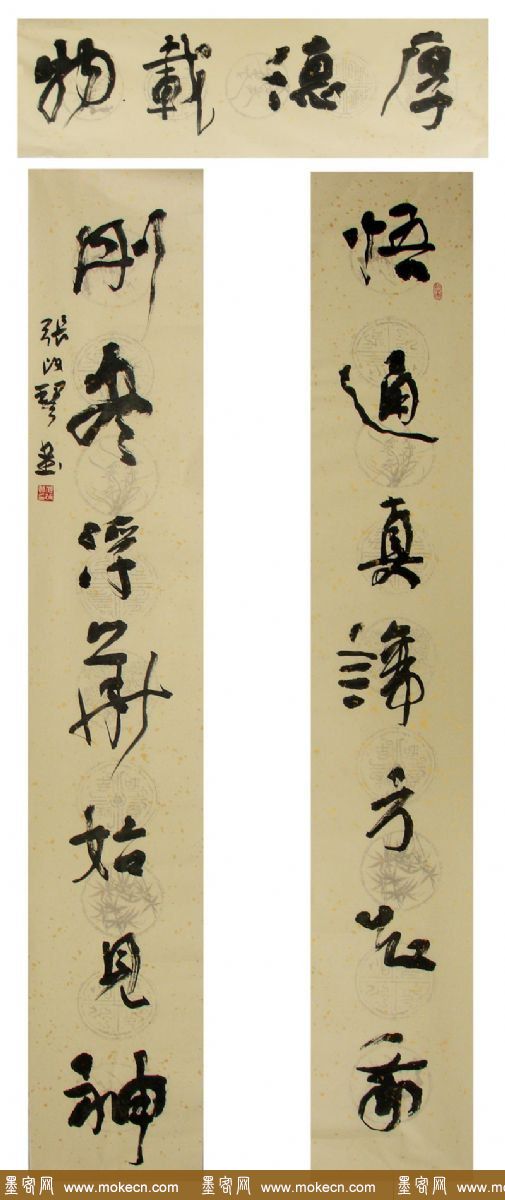 厚德載物
悟通真諦方知
刪盡浮華始見神
張改琴書
墨客网 www.mokecn.com 墨客网 www.mokecn.com 墨客网 www.mokecn.c